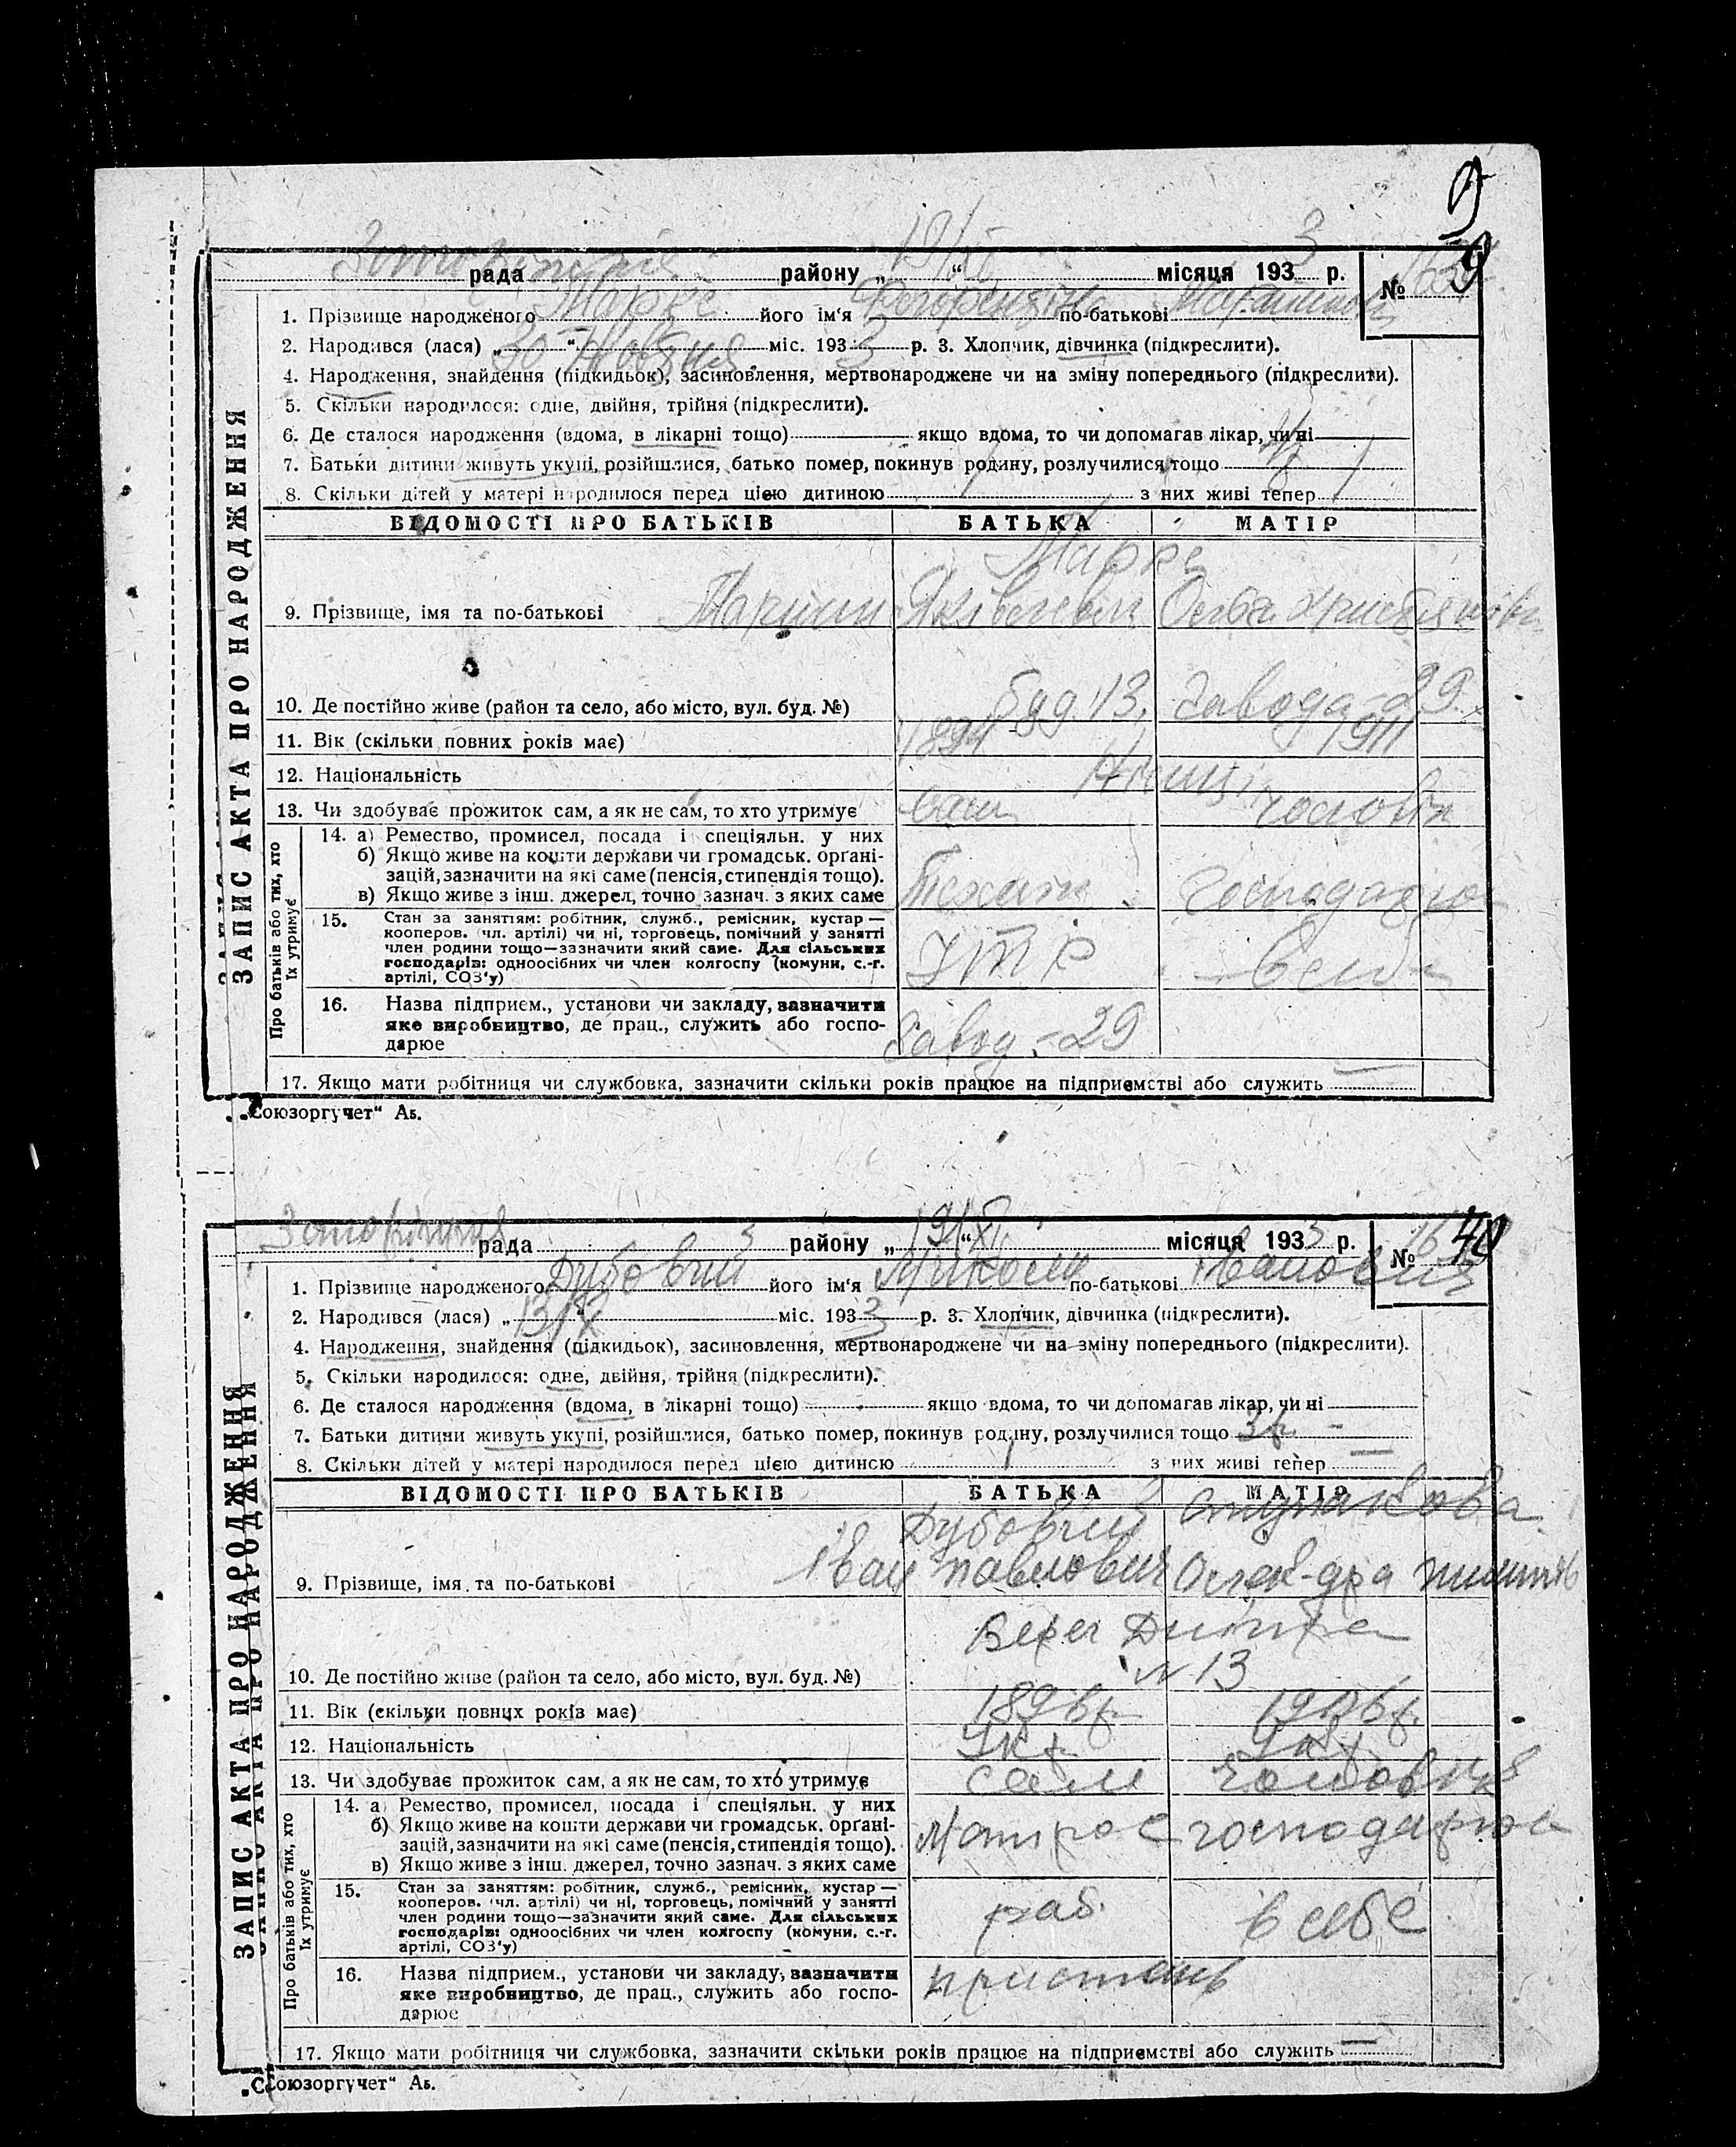 9
Запорізька рада району „ 19/XI “ місяця 1933 р. № 9
1. Прізвище народженого Маркс його ім‘я по-батькові
2. Народився (лася) „ 30 “ Жовтня міс. 1933 р. 3. Хлопчик, дівчинка (підкреслити).
4. Народження, знайдення (підкидьок), засиновлення, мертвонароджене чи на зміну попереднього (підкреслити).
5. Скільки народилося: одне, двійня, трійня (підкреслити).
6. Де сталося народження (вдома, в лікарні тощо) якщо вдома, то чи допомагав лікар, чи ні
7. Батьки дитини живуть укупі, розійшлися, батько помер, покинув родину, розлучилися тощо
8. Скільки дітей у матері народилося перед цією дитиною 1 з них живі тепер 1
ВІДОМОСТІ ПРО БАТЬКІВ БАТЬКА МАТІР
Маркс
9. Прізвище, імя та по-батькові Мартин Яківлевич Ольга Християнівн
10. Де постійно живе (район та село, або місто, вул. буд. №) буд. 13, завода-29.
11. Вік (скільки повних років має) 1894 1911
12. Національність Німці
13. Чи здобуває прожиток сам, а як не сам, то хто утримує сам чоловік
14. а) Ремество, промисел, посада і спеціяльн. у них
б) Якщо живе на кошти держави чи громадськ. орґані-
зацій, зазначити на які саме (пенсія, стипендія тощо).
в) Якщо живе з інш. джерел, точно зазнач. з яких саме Технік господарює
15. Стан за заняттям: робітник, служб., ремісник, кустар —
кооперов. (чл. артілі) чи ні, торговець, помічний у занятті
член родини тощо—зазначити який саме. Для сільських
господарів: одноосібних чи член колгоспу (комуни, с.-г.
артілі, СОЗ‘у) ІТР в себе
16. Назва підприєм., установи чи закладу, зазначити
яке виробництво, де прац., служить або госпо-
дарює Завод-29
17. Якщо мати робітниця чи службовка, зазначити скільки років працює на підприємстві або служить
ЗАПИС АКТА ПРО НАРОДЖЕННЯ
Про батьків або тих, хто
їх утримує
„Союзоргучет“ Аб.
Запорізька рада 3 району „ 19/XI “ місяця 1933 р. № 40
1. Прізвище народженого Дубовий його ім‘я Микола по-батькові Іванович
2. Народився (лася) „ 13/X “ міс. 1933 р. 3. Хлопчик, дівчинка (підкреслити).
4. Народження, знайдення (підкидьок), засиновлення, мертвонароджене чи на зміну попереднього (підкреслити).
5. Скільки народилося: одне, двійня, трійня (підкреслити).
6. Де сталося народження (вдома, в лікарні тощо) якщо вдома, то чи допомагав лікар, чи ні
7. Батьки дитини живуть укупі, розійшлися, батько помер, покинув родину, розлучилися тощо 3 р. -
8. Скільки дітей у матері народилося перед цією дитиною 1 з них живі тепер —
ВІДОМОСТІ ПРО БАТЬКІВ БАТЬКА МАТІР
Дубовий Ступакова
9. Прізвище, імя та по-батькові Іван Павлович Олек-дра
Берег Дніпра
10. Де постійно живе (район та село, або місто, вул. буд. №) № 13
11. Вік (скільки повних років має) 1896 р.
12. Національність Укр. Укр.
13. Чи здобуває прожиток сам, а як не сам, то хто утримує сам чоловік
14. а) Ремество, промисел, посада і спеціяльн. у них
б) Якщо живе на кошти держави чи громадськ. орґані-
зацій, зазначити на які саме (пенсія, стипендія тощо).
в) Якщо живе з інш. джерел, точно зазнач. з яких саме Матрос господарює
15. Стан за заняттям: робітник, служб., ремісник, кустар —
кооперов. (чл. артілі) чи ні, торговець, помічний у занятті
член родини тощо—зазначити який саме. Для сільських
господарів: одноосібних чи член колгоспу (комуни, с.-г.
артілі, СОЗ‘у) раб. в себе
16. Назва підприєм., установи чи закладу, зазначити
яке виробництво, де прац., служить або госпо-
дарює пристань
17. Якщо мати робітниця чи службовка, зазначити скільки років працює на підприємстві або служить —
ЗАПИС АКТА ПРО НАРОДЖЕННЯ
Про батьків або тих, хто
їх утримує
„Союзоргучет“ Аб.